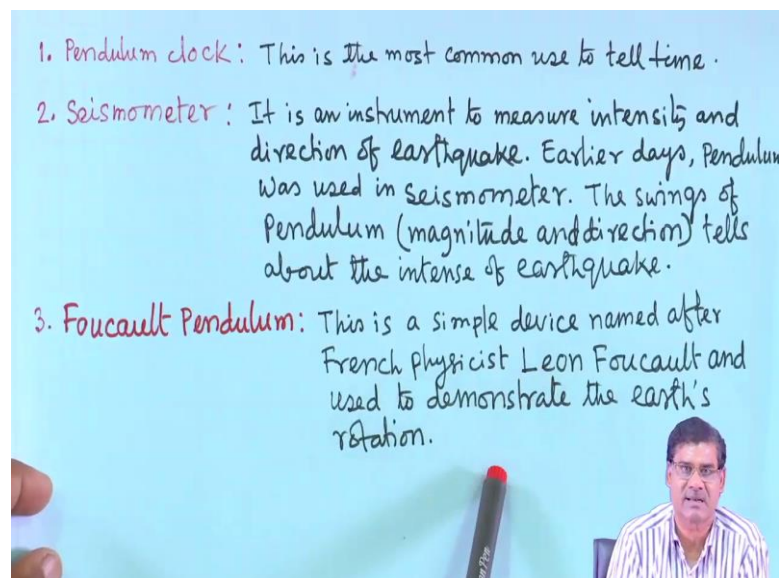 1. Pendulum clock: This is the most common use to tell time.
2. Seismometer: It is an instrument to measure intensity and
direction of earthquake. Earlier days, Pendulum
was used in seismometer. The swings of
Pendulum (magnitude and direction) tells
about the intense of earthquake.
3. Foucault Pendulum: This is a simple device named after
French physicist Leon Foucault and
used to demonstrate the earth's
rotation.